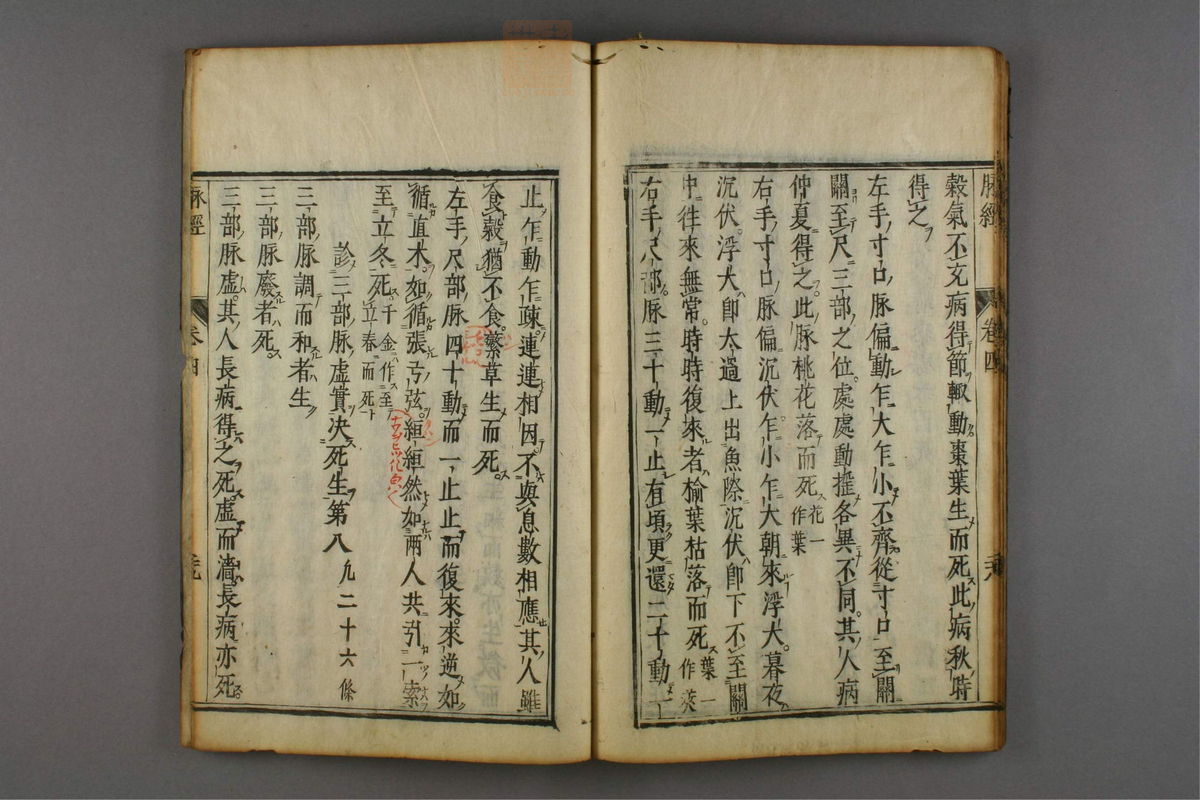 脉經 卷四 二六
穀氣不充病得節輙動棗葉生而死此病秋時
得之
左手寸口脉偏動乍大乍小不齊從寸口至關
關至尺三部之位處處動揺各異不同其人病
仲夏得之此脉桃花落而死花一作葉
右手寸口脉偏沉伏乍小乍大朝來浮大暮夜
沉伏浮大即太過上出魚際沉伏即下不至關
中徃來無常時時復來者榆葉枯落而死葉一作莢
右手尺部脉三十動一止有頃更還二十動一
止乍動乍疎連連相因不與息數相應其人雖
食穀猶不食蘩草生而死
左手尺部脉四十動而一止止而復來來逆如
循直木如循張弓弦絙絙然如兩人共引一索
至立冬死千金作至立春而死
診三部脉虛實决死生第八 凡二十六條
三部脉調而和者生
三部脉廢者死
三部脉虛其人長病得之死虛而濇長病亦死
脉經 卷四 二七